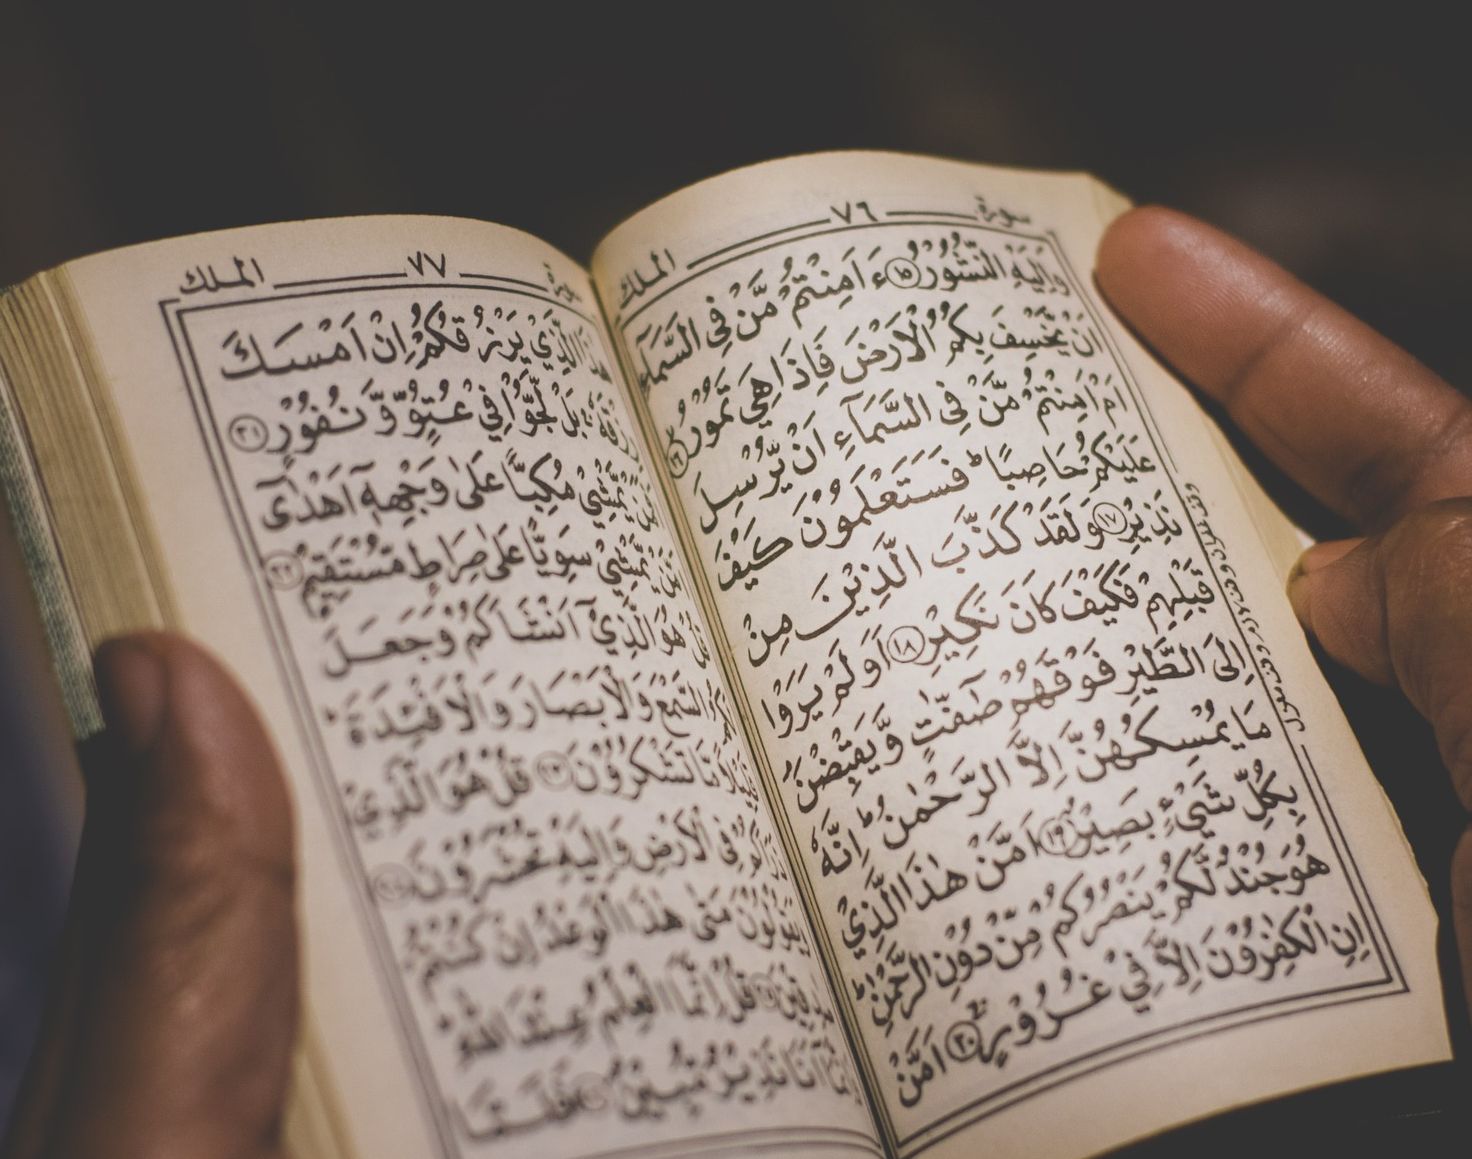 سورة ٧٦ الملك
وَاِلَيْهِ النُّشُوْرُ ﴿١٥﴾ ءَاَمِنْتُمْ مَّنْ فِي السَّمَآءِ
اَنْ يَّخْسِفَ بِكُمُ الْاَرْضَ فَاِذَا هِيَ تَمُوْرُ ﴿١٦﴾
اَمْ اَمِنْتُمْ مَّنْ فِي السَّمَآءِ اَنْ يُّرْسِلَ
عَلَيْكُمْ حَاصِبًا ؕ فَسَتَعْلَمُوْنَ كَيْفَ
نَذِيْرِ ﴿١٧﴾ وَلَقَدْ كَذَّبَ الَّذِيْنَ مِنْ
قَبْلِهِمْ فَكَيْفَ كَانَ نَكِيْرِ ﴿١٨﴾ اَوَلَمْ يَرَوْا
اِلَى الطَّيْرِ فَوْقَهُمْ صٰٓفّٰتٍ وَّيَقْبِضْنَ ؕ
مَا يُمْسِكُهُنَّ اِلَّا الرَّحْمٰنُ ؕ اِنَّهٗ
بِكُلِّ شَيْءٍۭ بَصِيْرٌ ﴿١٩﴾ اَمَّنْ هٰذَا الَّذِيْ
هُوَ جُنْدٌ لَّكُمْ يَنْصُرُكُمْ مِّنْ دُوْنِ الرَّحْمٰنِ ؕ
اِنِ الْكٰفِرُوْنَ اِلَّا فِيْ غُرُوْرٍ ﴿٢٠﴾ اَمَّنْ
سورة ٧٧ الملك
هٰذَا الَّذِيْ يَرْزُقُكُمْ اِنْ اَمْسَكَ
رِزْقَهٗ ۚ بَلْ لَّجُّوْا فِيْ عُتُوٍّ وَّنُفُوْرٍ ﴿٢١﴾
يَّمْشِيْ مُكِبًّا عَلٰى وَجْهِهٖٓ اَهْدٰىٓ
يَّمْشِيْ سَوِيًّا عَلٰى صِرَاطٍ مُّسْتَقِيْمٍ ﴿٢٢﴾
هُوَ الَّذِيْٓ اَنْشَاَكُمْ وَجَعَلَ
السَّمْعَ وَالْاَبْصَارَ وَالْاَفْـِٕدَةَ ؕ
قَلِيْلًا مَّا تَشْكُرُوْنَ ﴿٢٣﴾ قُلْ هُوَ الَّذِيْ
فِي الْاَرْضِ وَاِلَيْهِ تُحْشَرُوْنَ ﴿٢٤﴾
وَيَقُوْلُوْنَ مَتٰى هٰذَا الْوَعْدُ اِنْ كُنْتُمْ
قُلْ اِنَّمَا الْعِلْمُ عِنْدَ اللّٰهِ
اَنَا نَذِيْرٌ مُّبِيْنٌ فَلَمَّا